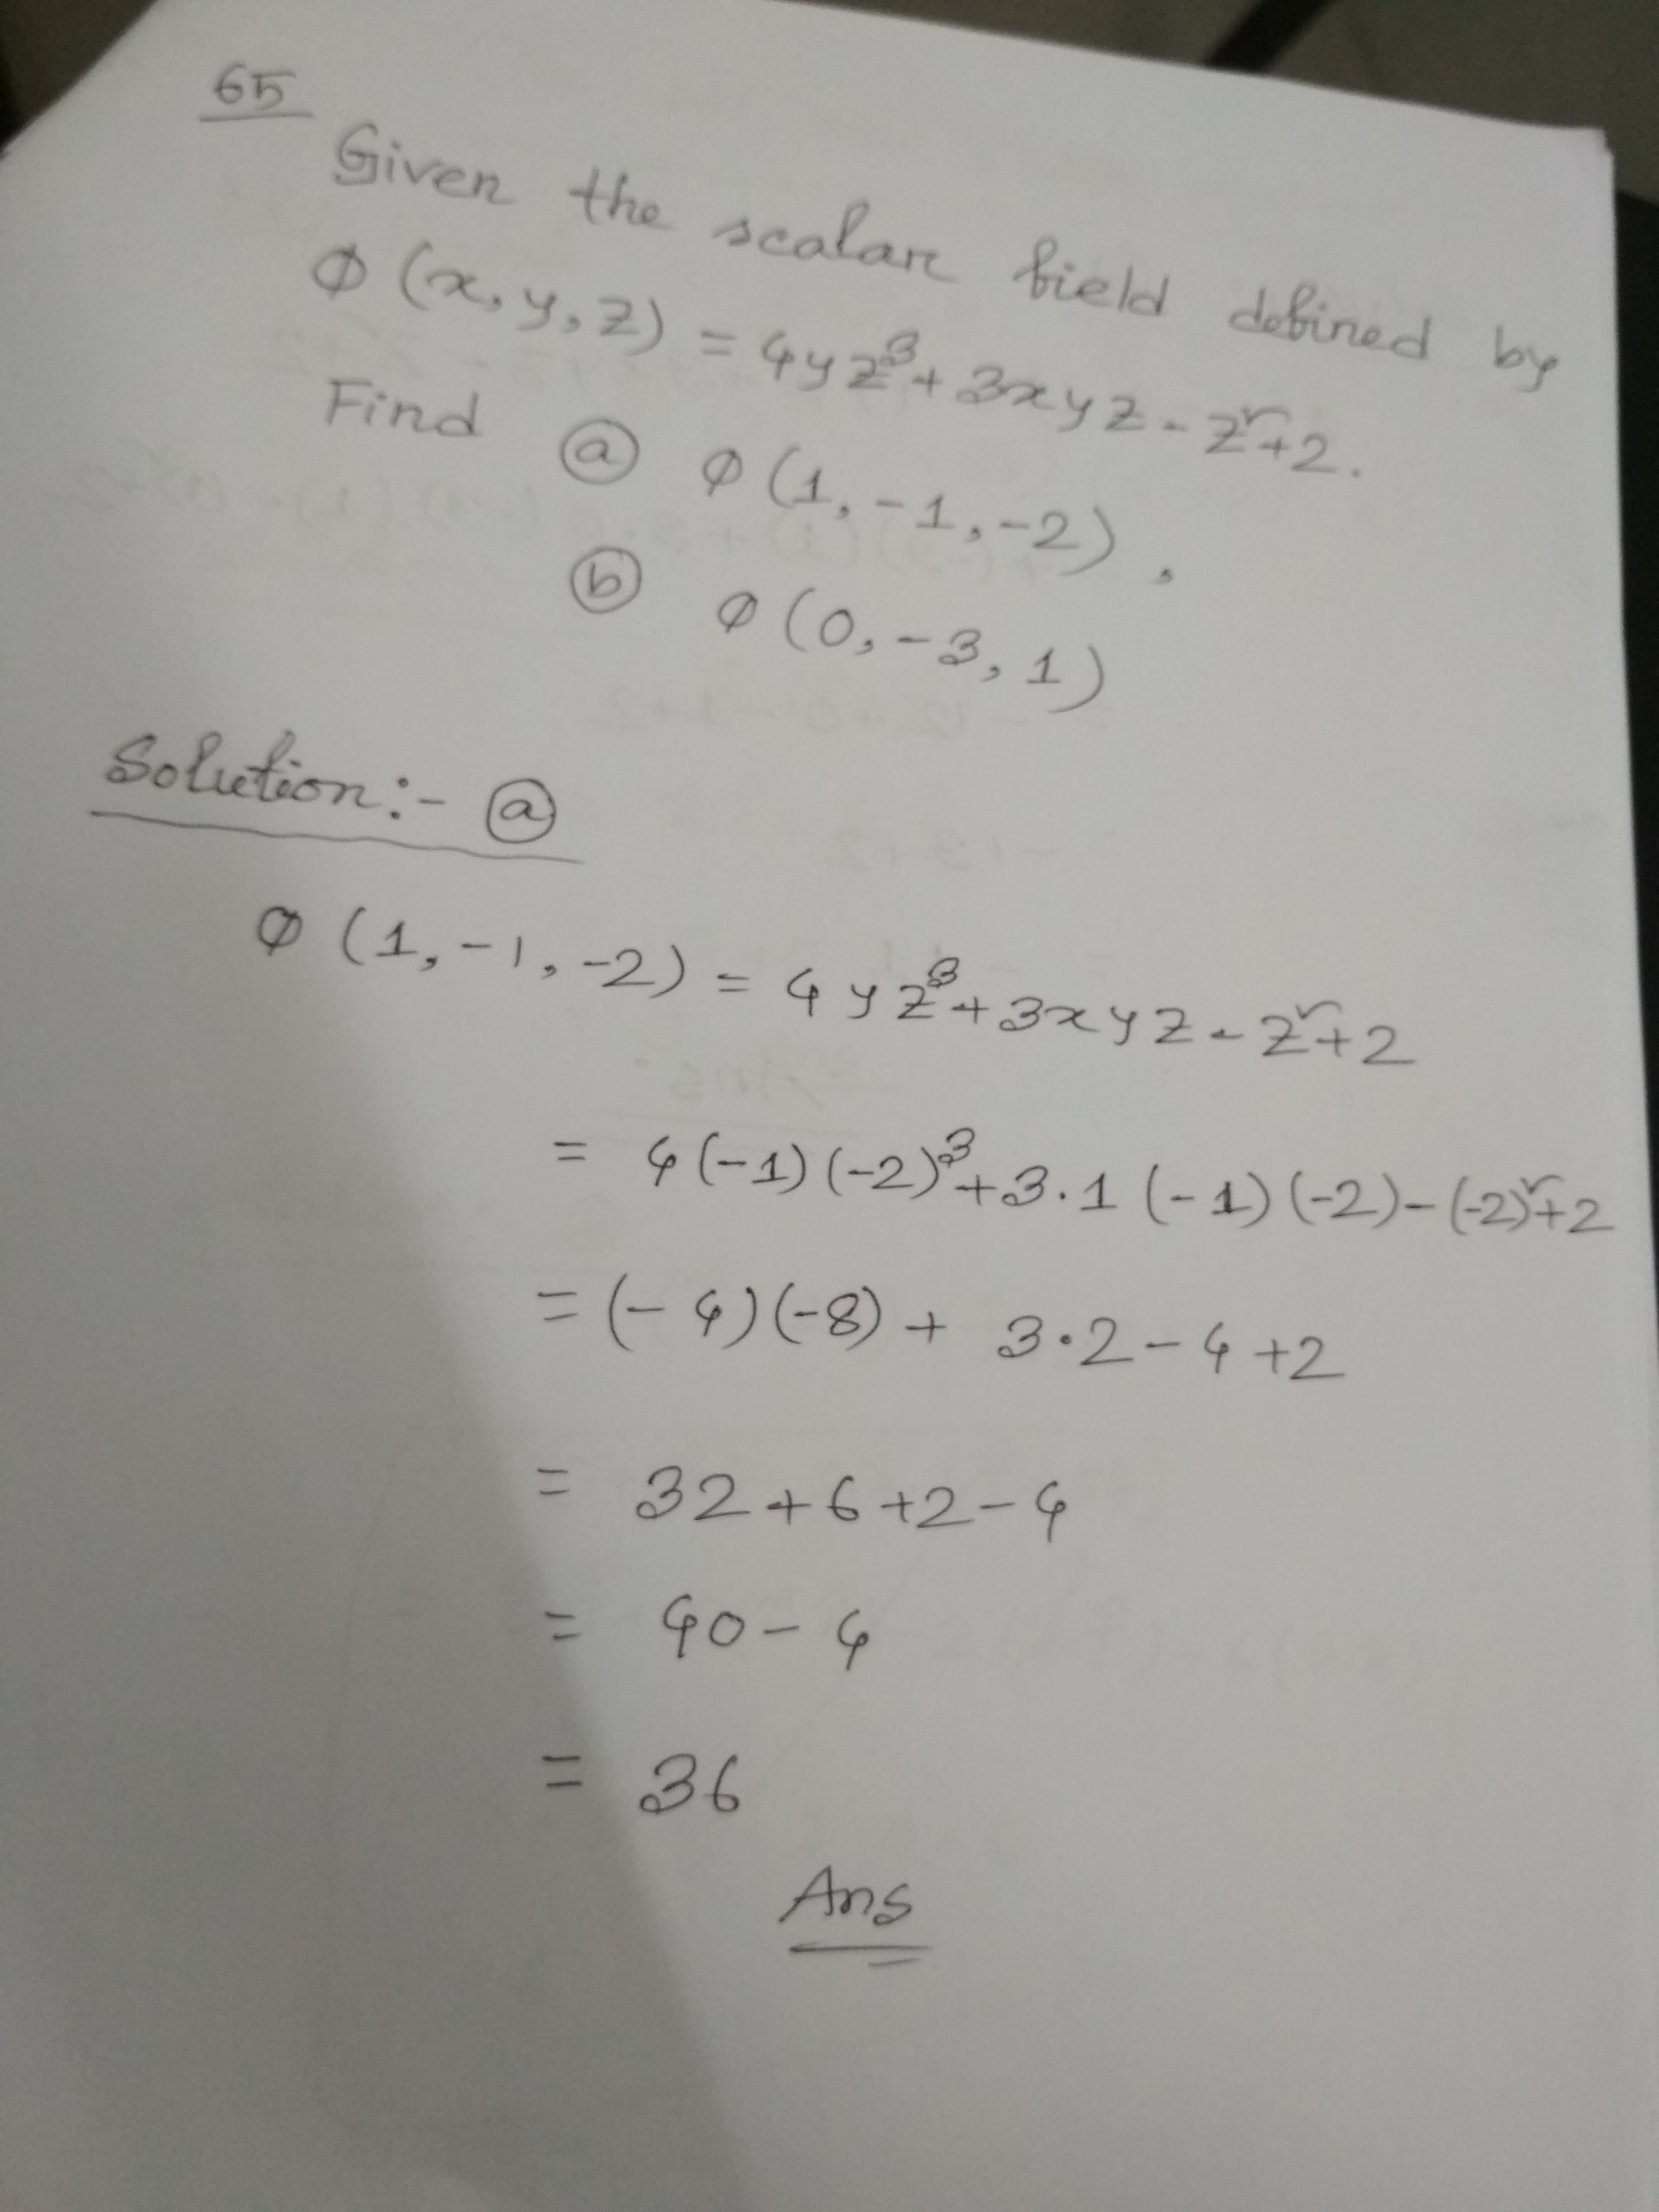 65
Given the scalar field defined by
Ø (x, y, z) = 4yz³ + 3xyz - z² + 2.
Find ⓐ Ø (1, -1, -2),
ⓑ Ø (0, -3, 1)
Solution:- ⓐ
Ø (1, -1, -2) = 4yz³ + 3xyz - z² + 2
= 4(-1)(-2)³ + 3.1(-1)(-2) - (-2)² + 2
= (-4)(-8) + 3·2 - 4 + 2
= 32 + 6 + 2 - 4
= 40 - 4
= 36
Ans